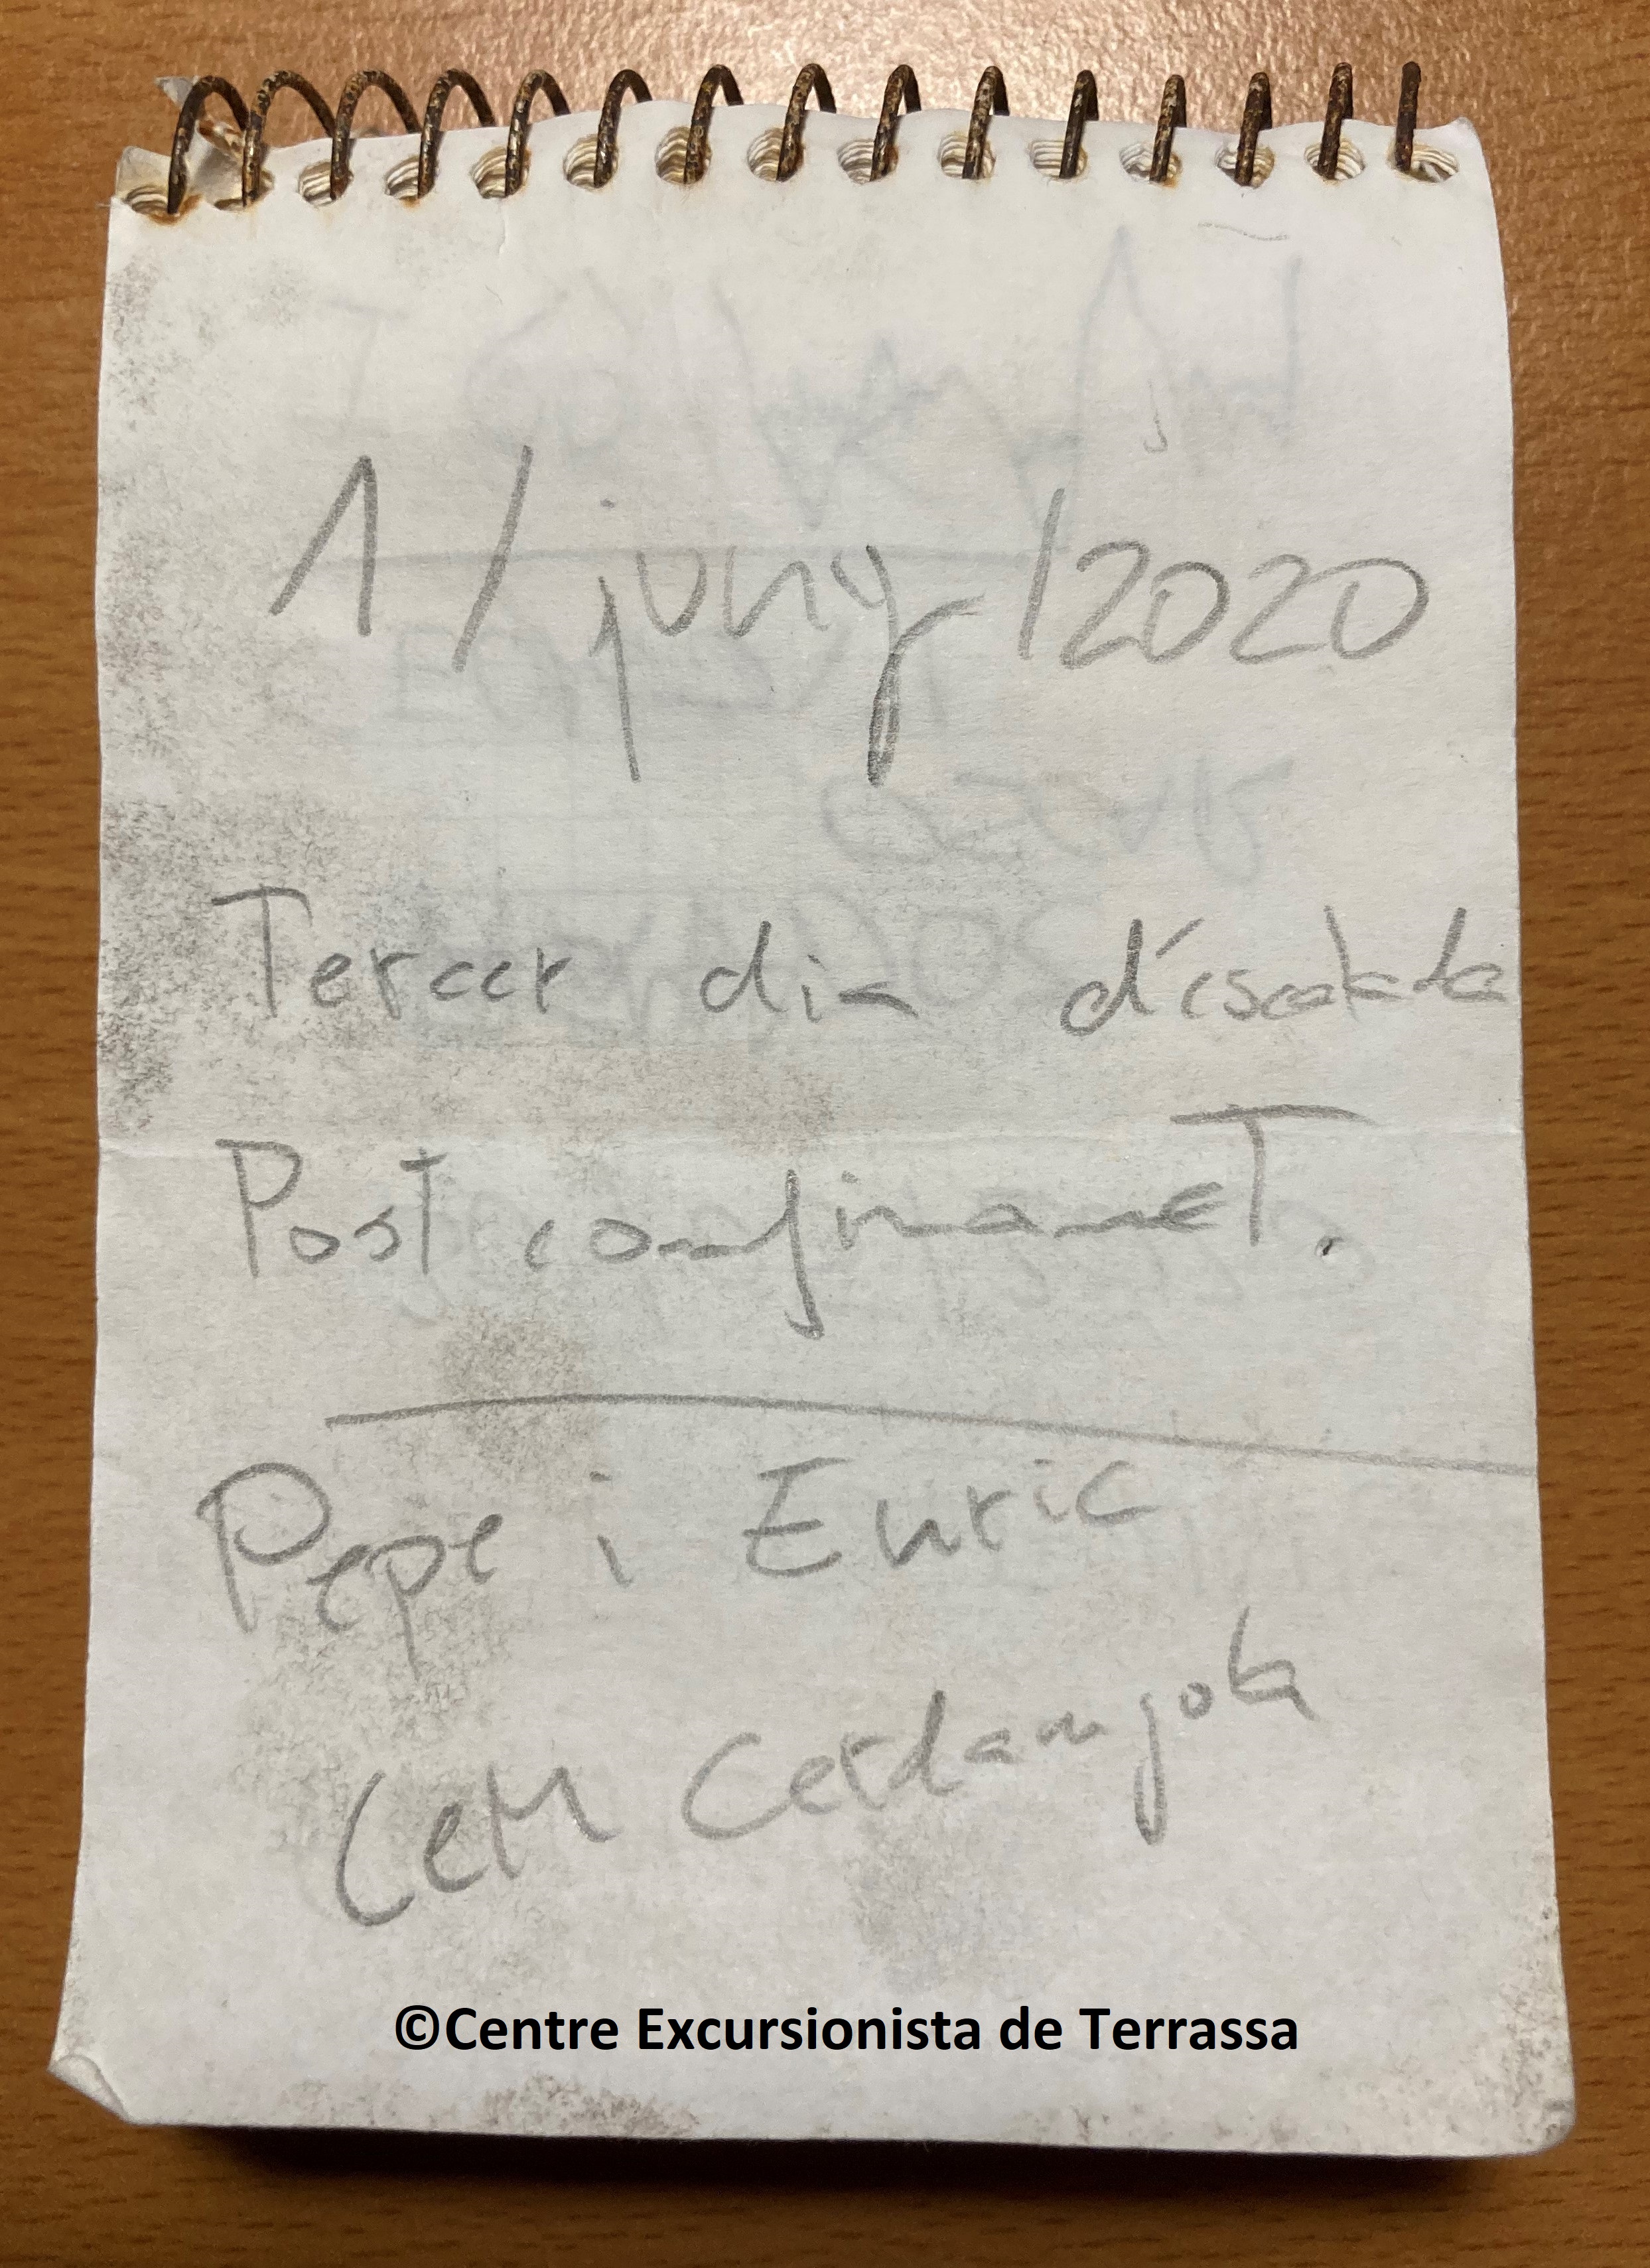 1/juny/2020
Tercer dia d'escalada
Post confinamet.
Pepe i Enric
CeM Cerdanyola
©Centre Excursionista de Terrassa